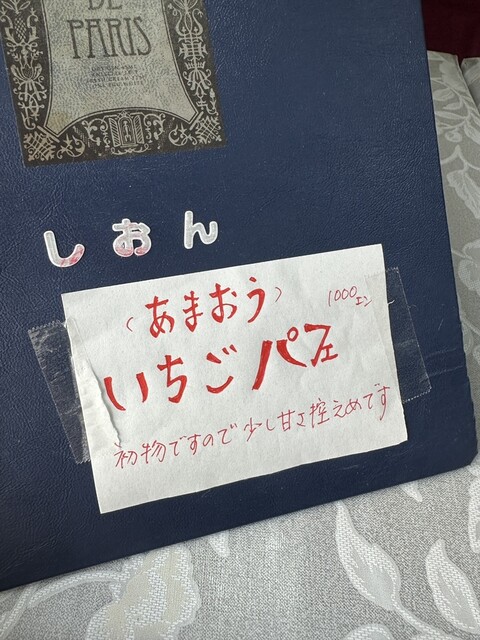 DE
PARIS
しおん
(あまおう) 1000エン
いちごパフェ
初物ですので少し甘さ控えめです